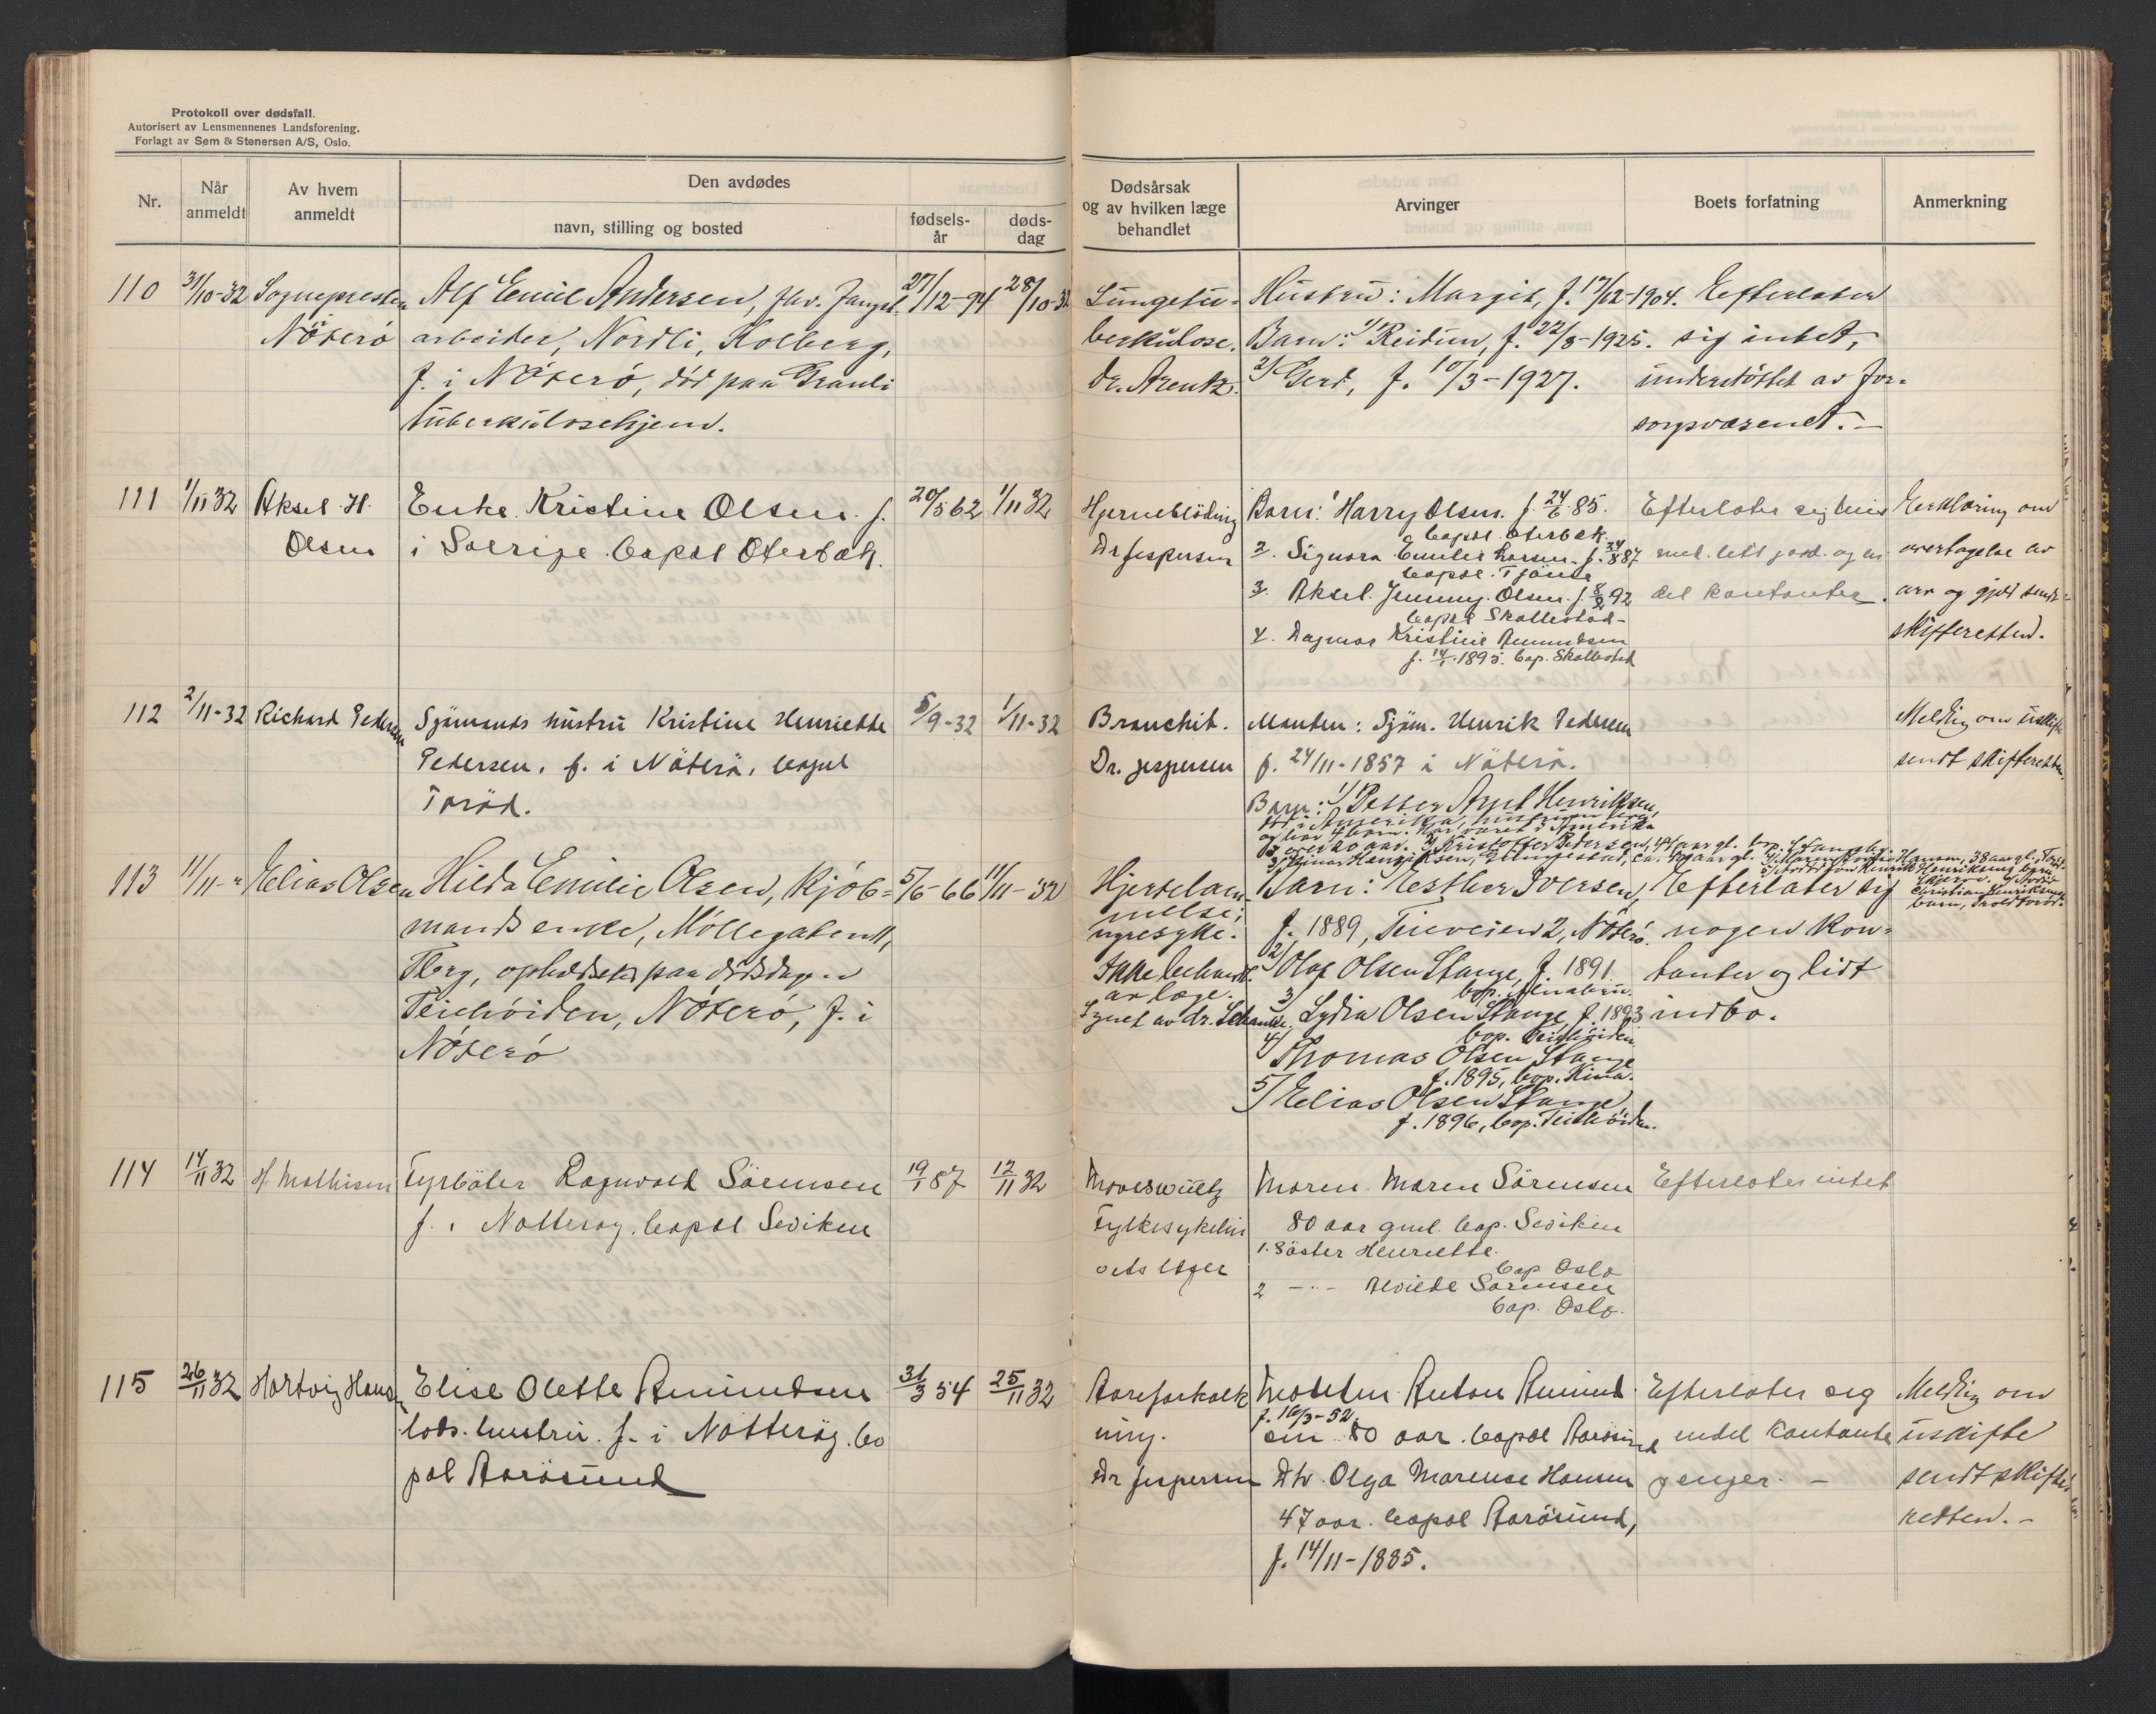 Protokoll over dødsfall.
Autorisert av Lensmennenes Landsforening.
Forlagt av Sem & Stenersen A/S, Oslo.
Nr.
Når anmeldt
Av hvem anmeldt
Den avdødes
navn, stilling og bosted
fødsels-år
døds-dag
Dødsårsak og av hvilken læge behandlet
Arvinger
Boets forfatning
Anmerkning
110
31/10-32
Sognepresten
Nøterø
Alf Emil Andersen, fhv. fangst-
arbeider, Nordli, Kolberg,
f. i Nøterø, død paa Granli
tuberkulosehjem.
27/12-94
28/10-32
Lungetu-
berkulose.
dr. Arentz.
Hustru: Margit, f. 17/12-1904.
Barn: 1/ Reidun, f. 22/8-1925.
2/ Gerd, f. 10/3-1927.
Efterlater
sig intet,
understøttet av for-
sorgsvæsenet.-
111
1/11 32
Aksel H.
Olsen
Enke Kristine Olsen f.
i Sverige bopæl Oterbæk
20/5 62
1/11 32
Hjerneblödning
Dr Jespersen
Barn: 1 Harry Olsen f. 24/6 85.
bopæl Oterbæk
2. Signora Emilie Larsen f. 87
bopæl Tjöme
3. Aksel Jenny Olsen f. 8/2 92
bopæl Skallestad-
4. Dagmar Kristine Amundsen
f. 14/1 1895 bop. Skallestad
Efterlater sig hus
med litt jord og en
del kontanter.
Erklæring om
overtagelse av
arv og gjeld sendt
skifteretten.
112
2/11-32
Richard Pedersen
Sjömands hustru Kristine Henriette
Pedersen, f. i Nöterö, bopæl
Toröd.
5/9-32
1/11-32
Bronchit.
Dr. Jespersen
Manden: Sjöm. Henrik Pedersen
f. 24/11-1857 i Nöterö.
Barn: 1/ Petter Arnt Henriksen,
død i Amerika, hustruen lever,
og har 4 barn. Har været i Amerika
over 20 aar. 2/ Kristoffer Pedersen, 49 aar gl. bop.
3/ Einar Henriksen,
38 aar gl.
Melding om uskifte
sendt skifteretten.
113
11/11-"
Elias Olsen
Hilda Emilie Olsen, Kjøb-
mands enke, Møllegaten 11,
Tbrg, opholdsted paa dødsdagen
Teiehøiden, Nøterø, f. i
Nøterø
5/5-66
11/11-32
Hjertelam-
melse;
nyresyke.
Ikke behandl.
av læge.
Synet av dr. Schanke.
Barn: Esther Iversen,
f. 1889, Teieveien 2, Nøterø.
2/ Olaf Olsen Stange, f. 1891.
3/ Lydia Olsen Stange, f. 1893
bop. Teiehøiden
4/ Thomas Olsen Stange
f. 1895, bop. Kina.
5/ Elias Olsen Stange
f. 1896, bop. Teiehöiden.
Efterlater sig
nogen kon-
tanter og lidt
indbo.
114
14/11 32
H. Mathisen
Fyrböter Ragnvald Sörensen
f. i Nøtteröy. bopæl Seviken
19/1 87
12/11 32
Fylkesykehu
sets læger
Moren Maren Sörensen
80 aar gml. bop. Seviken
1. Söster Henriette
bop Oslo
2 -"- Alvilde Sörensen
bop. Oslo.
Efterlater intet
115
26/11 32
Hartvig Hansen
Elise Olette Amundsen
lods hustru f. i Nøtteröy. bo
pæl Aarösund
31/3 54
25/11 32
Aareforkalk
ning.
Dr Jespersen
Manden Anton Amund
f. 16/3-52.
sen 80 aar. bopæl Aarösund
Dtr. Olga Marense Hansen
47 aar. bopæl Aarösund,
f. 14/11-1885.
Efterlater sig
endel kontante
penger. -
Melding om
uskifte
sendt skifte
retten.-